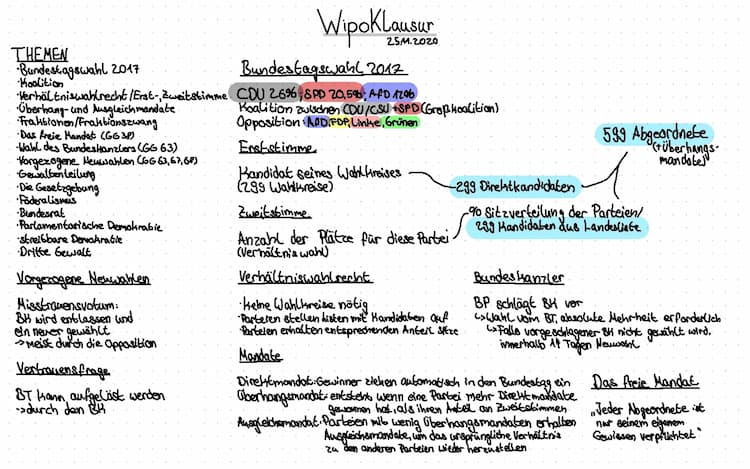 WipoKlausur
25.11.2020
THEMEN
·Bundestagswahl 2017
·Koalition
·Verhältniswahlrecht/Erst-,Zweitstimme
·Überhang- und Ausgleichmandate
·Fraktionen/Fraktionszwang
·Das freie Mandat (GG38)
·Wahl des Bundeskanzlers (GG 63)
·Vorgezogene Neuwahlen (GG 63,67,68)
·Gewaltenteilung
·Die Gesetzgebung
·Föderalismus
·Bundesrat
·Parlamentarische Demokratie
·streitbare Demokratie
·Dritte Gewalt
Bundestagswahl 2017
CDU 26%, SPD 20,5%, AfD 12%
Koalition zwischen CDU/CSU + SPD (Großkoalition)
Opposition: AfD, FDP, Linke, Grünen
Erststimme
Kandidat seines Wahlkreises
(299 Wahlkreise)
299 Direktkandidaten
599 Abgeordnete
(+Überhangs-
mandate)
Zweitstimme
Anzahl der Plätze für diese Partei
(Verhältniswahl)
% Sitzverteilung der Parteien/
299 Kandidaten aus Landesliste
Vorgezogene Neuwahlen
Misstrauensvotum:
BK wird entlassen und
ein neuer gewählt
→ meist durch die Opposition
Vertrauensfrage
BT kann aufgelöst werden
→ durch den BK
Verhältniswahlrecht
·keine Wahlkreise nötig
·Parteien stellen Listen mit Kandidaten auf
·Parteien erhalten entsprechenden Anteil Sitze
Bundeskanzler
BP schlägt BK vor
↳Wahl vom BT, absolute Mehrheit erforderlich
↳Falls vorgeschlagener BK nicht gewählt wird,
innerhalb 14 Tagen Neuwahl
Mandate
Direktmandat: Gewinner ziehen automatisch in den Bundestag ein
Überhangsmandat: entsteht, wenn eine Partei mehr Direktmandate
gewonnen hat, als ihren Anteil an Zweitstimmen
Ausgleichsmandat: Parteien mit wenig Überhangsmandaten erhalten
Ausgleichsmandate, um das ursprüngliche Verhältnis
zu den anderen Parteien wieder herzustellen
Das freie Mandat
„Jeder Abgeordnete ist
nur seinem eigenem
Gewissen verpflichtet"